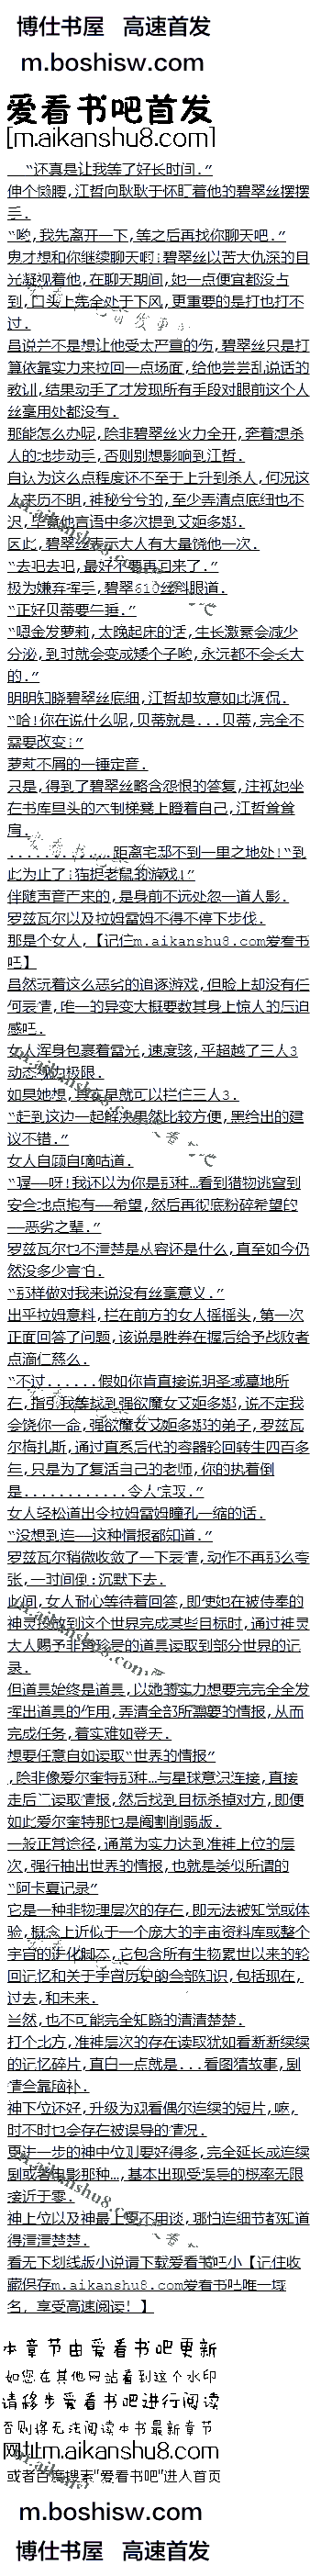 博仕书屋 高速首发
m.boshisw.com
爱看书吧首发
[m.aikanshu8.com]
“还真是让我等了好长时间.”
伸个懒腰,江哲向耿耿于怀盯着他的碧翠丝摆摆
手.
“哟,我先离开一下,等之后再找你聊天吧.”
鬼才想和你继续聊天啊!碧翠丝以苦大仇深的目
光凝视着他,在聊天期间,她一点便宜都没占
到,口头上完全处于下风,更重要的是打也打不
过.
虽说并不是想让他受太严重的伤,碧翠丝只是打
算依靠实力来拉回一点场面,给他尝尝乱说话的
教训,结果动手了才发现所有手段对眼前这个人
丝毫用处都没有.
那能怎么办呢,除非碧翠丝火力全开,奔着想杀
人的地步动手,否则别想影响到江哲.
自认为这么点程度还不至于上升到杀人,何况这
人来历不明,神秘兮兮的,至少弄清点底细也不
迟,毕竟他言语中多次提到艾姬多娜.
因此,碧翠丝表示大人有大量饶他一次.
“去吧去吧,最好不要再回来了.”
极为嫌弃挥手,碧翠610丝斜眼道.
“正好贝蒂要午睡.”
“嗯金发萝莉,太晚起床的话,生长激素会减少
分泌,到时就会变成矮个子哟,永远都不会长大
的.”
明明知晓碧翠丝底细,江哲却故意如此调侃.
“哈!你在说什么呢,贝蒂就是...贝蒂,完全不
需要改变!”
萝莉不屑的一锤定音.
只是,得到了碧翠丝略含怨恨的答复,注视她坐
在书库里头的木制梯凳上瞪着自己,江哲耸耸
肩.
............距离宅邸不到一里之地处!“到
此为止了!猫捉老鼠的游戏!”
伴随声音而来的,是身前不远处忽一道人影.
罗兹瓦尔以及拉姆雷姆不得不停下步伐.
那是个女人,【记住m.aikanshu8.com爱看书
吧】
虽然玩着这么恶劣的追逐游戏,但脸上却没有任
何表情,唯一的异变大概要数其身上惊人的压迫
感吧.
女人浑身包裹着雷光,速度骇,平超越了三人3
动态视力极限.
如果她想,其实早就可以拦住三人3.
“赶到这边一起解决果然比较方便,黑给出的建
议不错.”
女人自顾自嘀咕道.
“喔——呀!我还以为你是那种…看到猎物逃窜到
安全地点抱有——希望,然后再彻底粉碎希望的
——恶劣之辈.”
罗兹瓦尔也不清楚是从容还是什么,直至如今仍
然没多少害怕.
“那样做对我来说没有丝毫意义.”
出乎拉姆意料,拦在前方的女人摇摇头,第一次
正面回答了问题,该说是胜券在握后给予战败者
点滴仁慈么.
“不过......假如你肯直接说明圣域墓地所
在,指引我等找到强欲魔女艾姬多娜,说不定我
会饶你一命,强欲魔女艾姬多娜的弟子,罗兹瓦
尔梅扎斯,通过直系后代的容器轮回转生四百多
年,只是为了复活自己的老师,你的执着倒
是............令人惊叹.”
女人轻松道出令拉姆雷姆瞳孔一缩的话.
“没想到连——这种情报都知道.”
罗兹瓦尔稍微收敛了一下表情,动作不再那么夸
张,一时间倒:沉默下去.
此间,女人耐心等待着回答,即使她在被侍奉的
神灵投放到这个世界完成某些目标时,通过神灵
大人赐予非常珍贵的道具读取到部分世界的记
录.
但道具始终是道具,以她的实力想要完完全全发
挥出道具的作用,弄清全部所需要的情报,从而
完成任务,着实难如登天.
想要任意自如读取“世界的情报”
,除非像爱尔奎特那种…与星球意识连接,直接
走后门读取情报,然后找到目标杀掉对方,即便
如此爱尔奎特那也是阉割削弱版.
一般正常途径,通常为实力达到准神上位的层
次,强行抽出世界的情报,也就是类似所谓的
“阿卡夏记录”
它是一种非物理层次的存在,即无法被知觉或体
验,概念上近似于一个庞大的宇宙资料库或整个
宇宙的进化脚本,它包含所有生物累世以来的轮
回记忆和关于宇宙历史的全部知识,包括现在,
过去,和未来.
当然,也不可能完全知晓的清清楚楚.
打个比方,准神层次的存在读取犹如看断断续续
的记忆碎片,直白一点就是...看图猜故事,剧
情全靠脑补.
神下位还好,升级为观看偶尔连续的短片,嗯,
时不时也会存在被误导的情况.
更进一步的神中位则要好得多,完全延长成连续
剧或者电影那种…,基本出现受误导的概率无限
接近于零.
神上位以及神最上更不用谈,哪怕连细节都知道
得清清楚楚.
看无下划线版小说请下载爱看书吧小【记住收
藏保存m.aikanshu8.com爱看书吧唯一域
名，享受高速阅读！】
本章节由爱看书吧更新
如您在其他网站看到这个水印
请移步爱看书吧进行阅读
否则将无法阅读本书最新章节
网址m.aikanshu8.com
或者百度搜索"爱看书吧"进入首页
m.boshisw.com
博仕书屋 高速首发